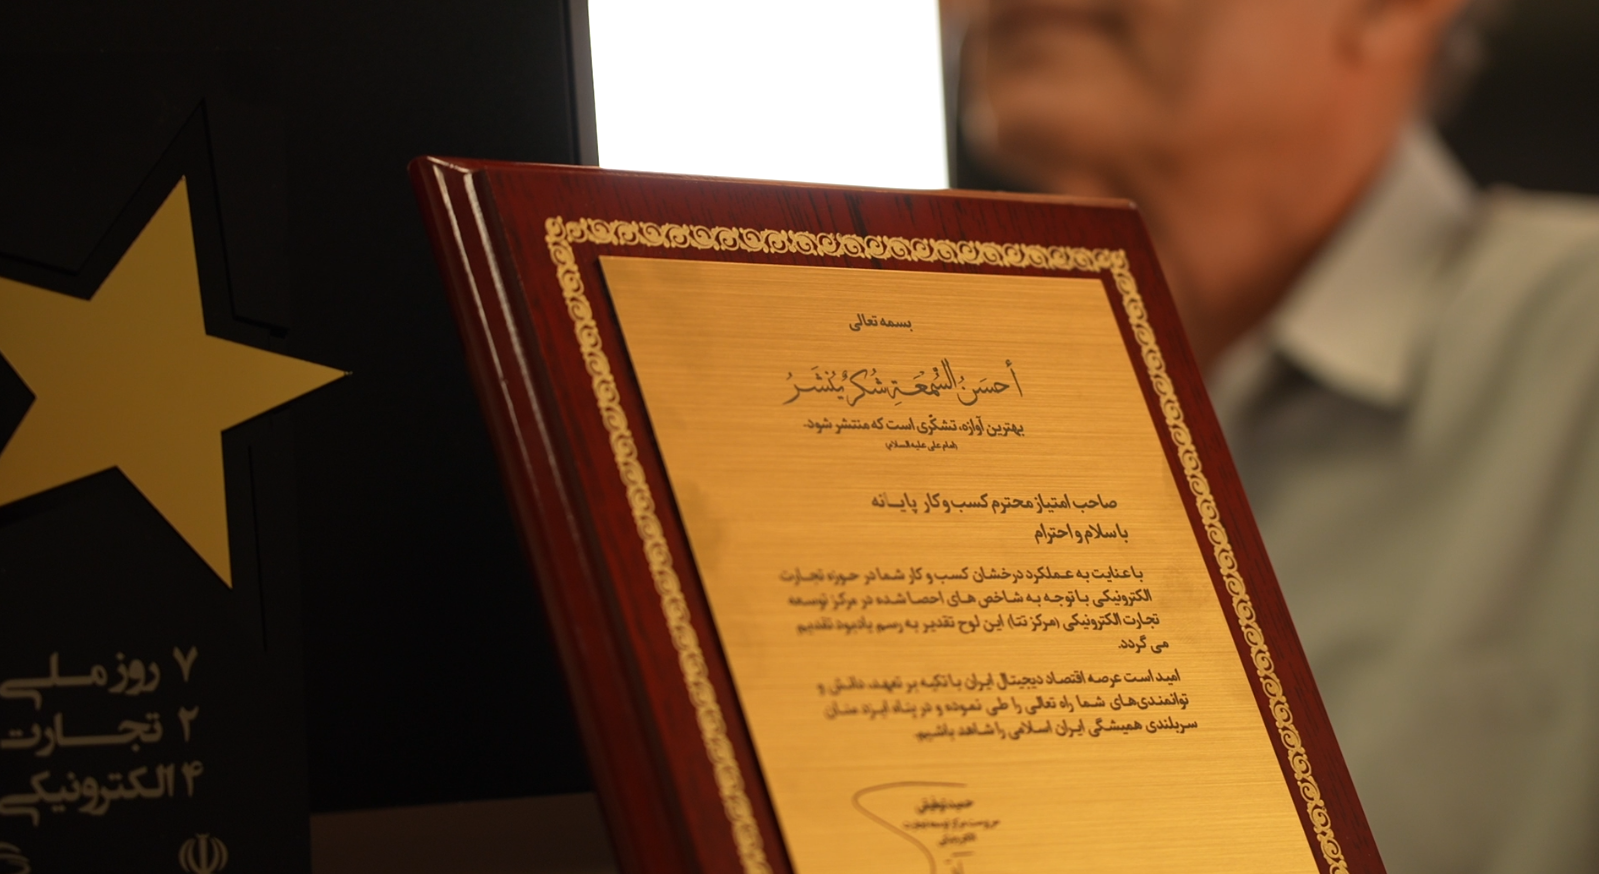 بسمه تعالی
أحسَنُ السُّمعَةِ شُکرٌ یُنشَرُ
بهترین آوازه، تشکّری است که منتشر شود.
(امام علی علیه السلام)
صاحب امتیاز محترم کسب و کار پایانه
با سلام و احترام
با عنایت به عملکرد درخشان کسب و کار شما در حوزه تجارت
الکترونیکی با توجه به شاخص های احصا شده در مرکز توسعه
تجارت الکترونیکی (مرکز تتا) این لوح تقدیر به رسم یادبود تقدیم
می گردد.
امید است عرصه اقتصاد دیجیتال ایران با تکیه بر تعهد، دانش و
توانمندی‌های شما راه تعالی را طی نموده و در پناه ایزد منان
سربلندی همیشگی ایران اسلامی را شاهد باشیم.
۷ روز ملی
۲ تجارت
۴ الکترونیکی